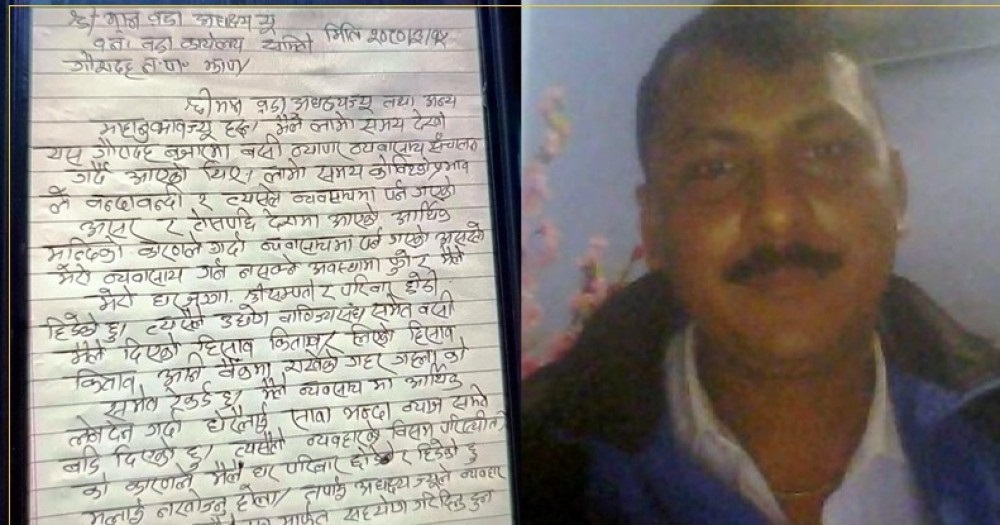 श्री मान वडा अध्यक्ष ज्यू
१ नं वडा कार्यालय मिति २०८०।९।१५
गौरादह न.पा. झापा
श्रीमान वडा अध्यक्षज्यू तथा अन्य
महानुभावज्यू हरु। मैले लामो समय देखी
यस गौरादह बजारमा बसी व्यापार व्यवासाय संचालन
गर्दै आएको थिए। लामो समय कोभिडको प्रभाव
ले बन्दाबन्दी र त्यसले व्यवसायमा पर्न गएको
असर र त्यसपछि देशमा आएको आर्थिक
मन्दिको कारणले गर्दा व्यवासायमा पर्न गएको असरले
मेरो व्यवासाय गर्न नसक्ने अवस्थामा पुगे र मैले
मेरो घर जग्गा, श्रीसम्पती र परिवार छोडी
हिडेको छु। त्यसैले उद्योग वाणिज्य संघ समेत बसी
मैले दिएको हिसाव किताब र लिएको हिसाव
किताव अनि बैंकमा राखेको गहर गहना को
समेत रेकर्ड छ। मैले व्यवसाय मा आर्थिक
लेनदेन गर्दा धेरैलाई सावा भन्दा ब्याज समेत
बढि दिएको छु। त्यसैले व्यवहारको विसम परिस्थीती
को कारणले मैले घर परिवार छोडेर हिडेको छु
मलाई नखोज्नु होला। तपाई अध्यक्ष ज्यूले व्यवहार
मार्फत सहयोग गरिदिनु हुन